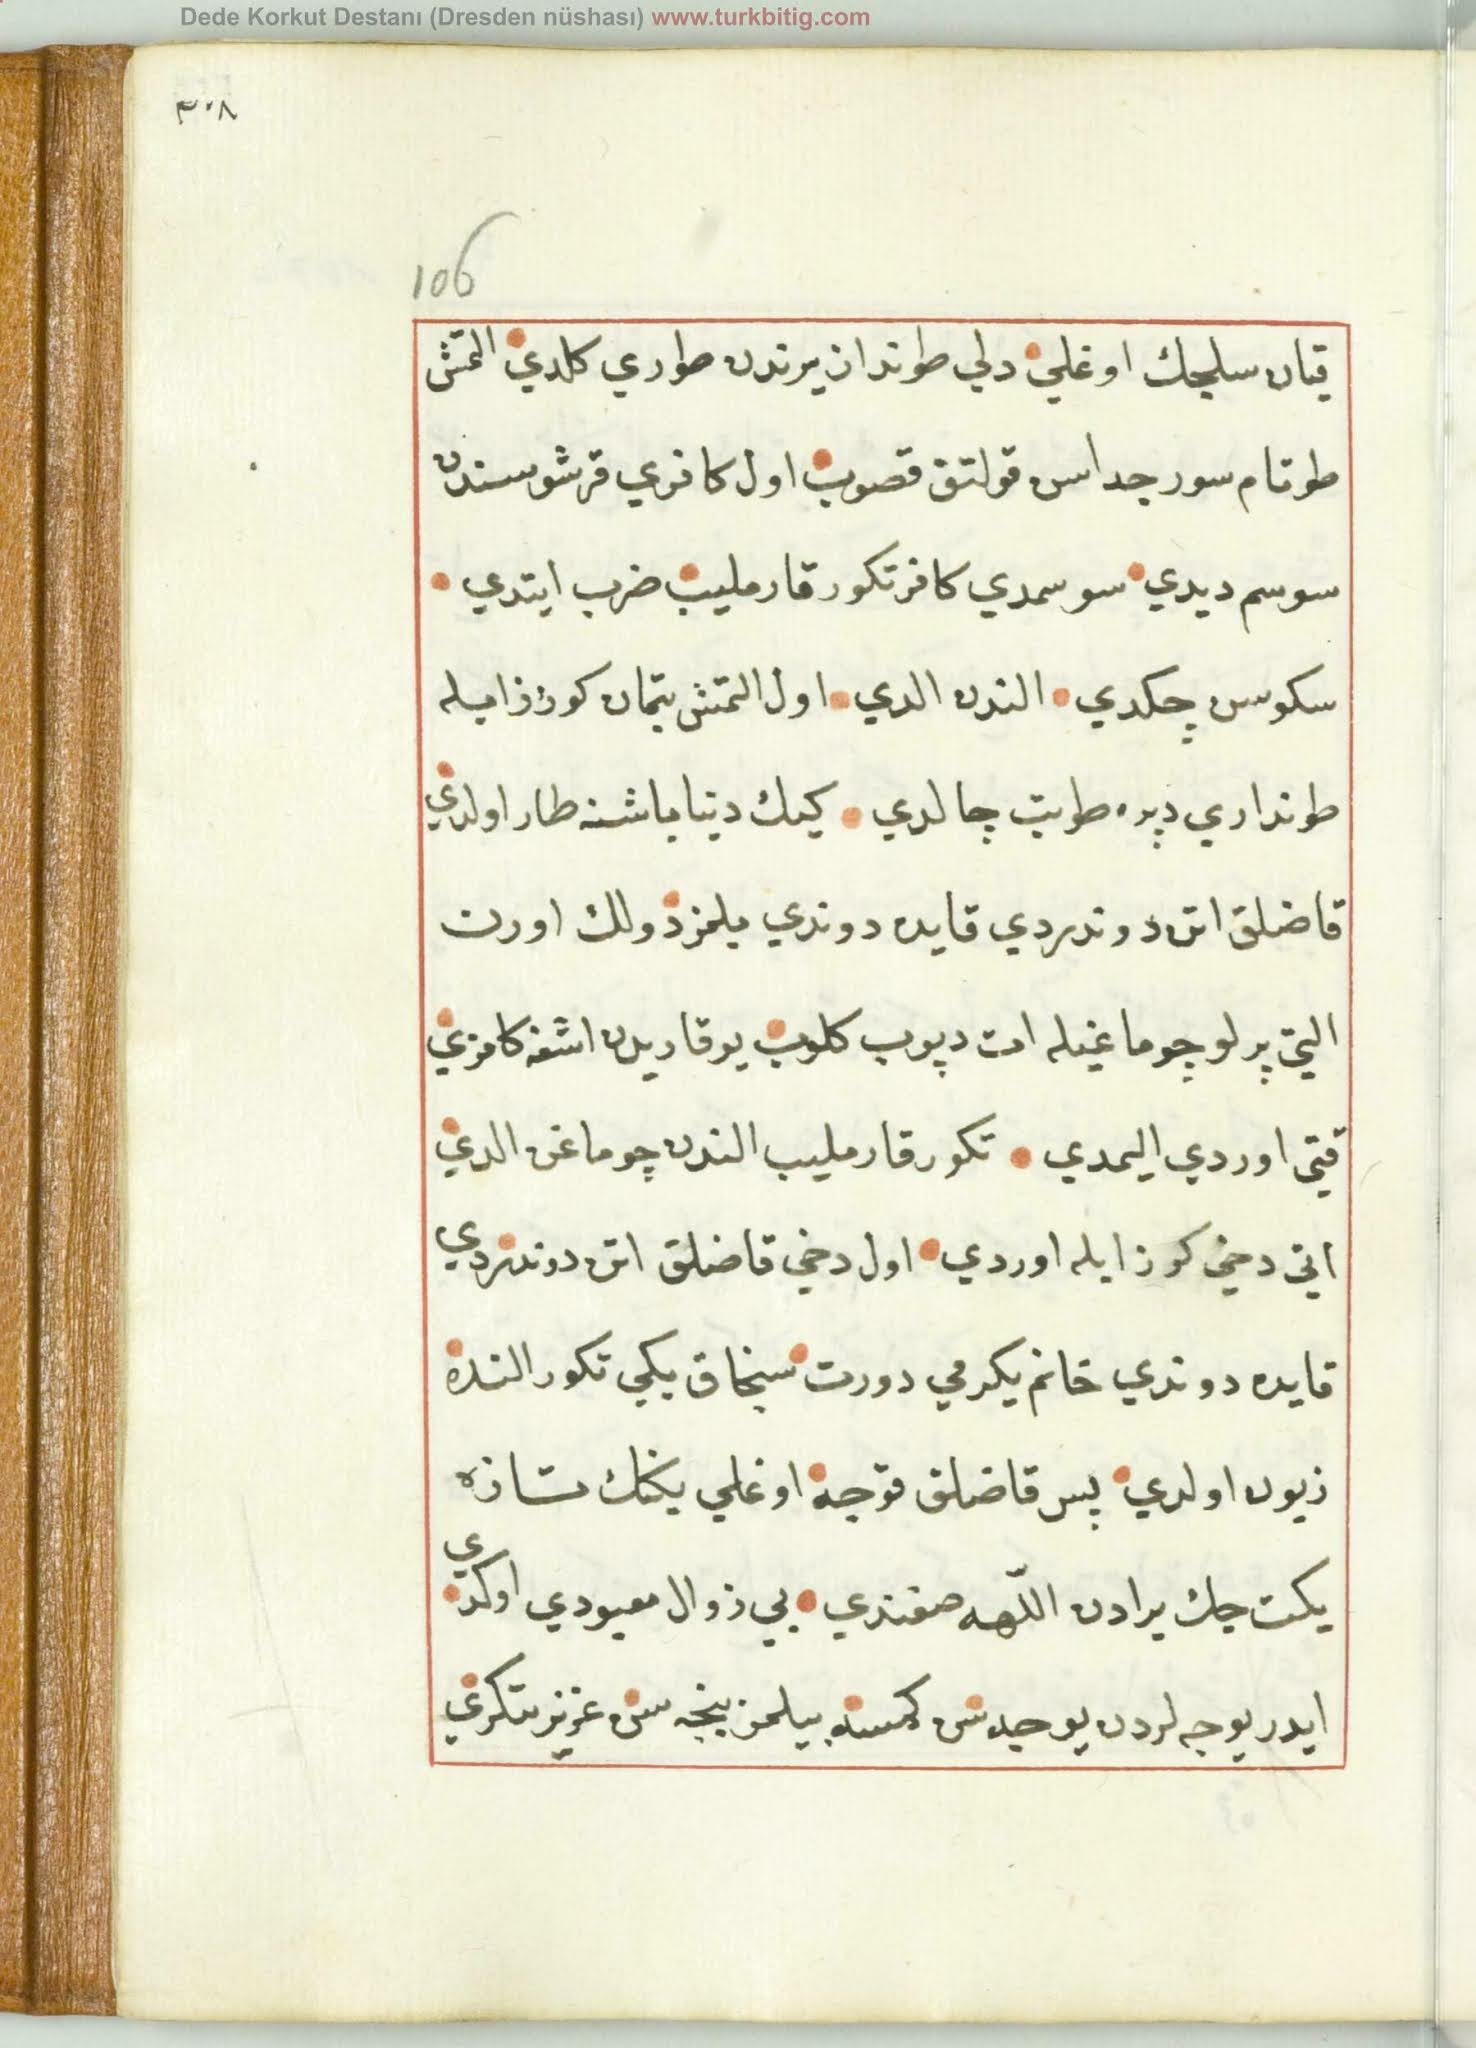 Dede Korkut Destanı (Dresden nüshası) www.turkbitig.com
٣٠٨
106
قیان سلجك اوغلي دلي طوندار یرندن طوري كلدي التمش
طوتام سور جداسن قولتق قصوب اول كافري قرشوسندن
سوسم دیدي سوسمدي كافر تكور قارملیب ضرب ایتدي
سكوسن چكدي الندن الدي اول التمش بتمان كورز ایله
طونداري دپره طوبت چالدي كیك دنیا باشنه طار اولدي
قاضلق اتن دوندردي قایده دوندي یلمز دولك اورن
التي پرلو چوماغیله ات دپوب كلوب یوقاریدن اشغه كافري
قتي اوردي الیمدي تكور قارملیب الندن چوماغن الدي
اني دخي كورز ایله اوردي اول دخي قاضلق اتن دوندردي
قایده دوندي خانم یكرمي دورت سنجاق بكي تكور النده
زبون اولدي پس قاضلق قوجه اوغلي یكنك تازه
یكت جك یرادن اللهه صغندي بي زوال معبودي اوكدي
ایدر یوجه لردن یوجه سن كمسنه بیلمز نیجه سن عزیز تكري